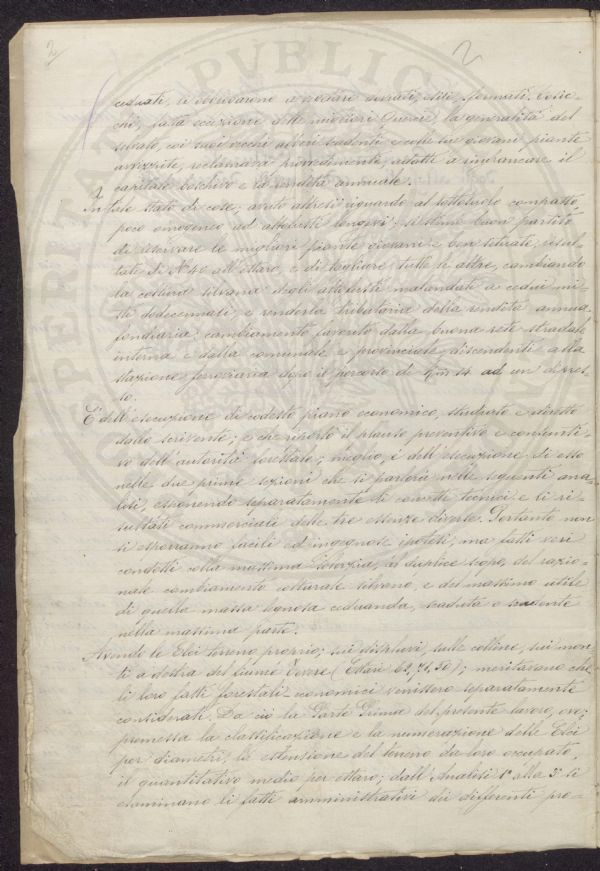 2
2
ceduati, le corrosioni a vedere
chi, fatta eccezione delle migliori Querce, la generalità del
selvato, coi suoi vecchi alberi scadenti e colle sue giovani piante
avvizzite, reclamava provvedimenti adatti a rinfrancare il
capitale boschivo e la rendita annuale.
In tale stato di cose, avuto altresì riguardo al sottobosco compatto,
poco omogeneo ed alberelli longevi; si stimò buon partito
di riservare le migliori piante giovani e ben situati, isolate
di N. 40 all'ettaro, e di togliere tutte le altre, cambiando
la coltura silvana degli malandati a cedui mi-
sti dodecennali, e renderla tributaria della rendita annua
fondiaria: cambiamento favorito dalla buona rete stradale
interna e dalla comunale e provinciale, discendenti alla
stazione ferroviaria dopo il percorso di Km 14 ad un dipres-
so.
È dell'esecuzione di codesto piano economico, studiato e diretto
dallo scrivente; e che riportò il plauso preventivo e consunti-
vo dell'autorità forestale; meglio, è dell'esecuzione di esso
nelle due prime sezioni che si parlerà nelle seguenti ana-
lisi, esponendo separatamente li concetti tecnici e li ri-
sultati commerciali delle tre essenze diverse. Pertanto non
si esporranno facili ed ingegnose ipotesi, ma fatti veri
condotti colla massima solerzia, al duplice scopo, del razio-
nale cambiamento colturale silvano, e del massimo utile
di quella massa legnosa ceduanda, scaduta o scadente
nella massima parte.
Avendo le Elci terreno proprio; sui displuvi, sulle colline, sui mon-
ti a destra del fiume Tevere (Ettari 62,71,50); meritavano che
li loro fatti forestali economici venissero separatamente
considerati. Da ciò la Parte Prima del presente lavoro, ove;
premessa la classificazione e la numerazione delle Elci
per diametri, la estensione del terreno da loro occupato,
il quantitativo medio per ettaro; dall'Analisi 1ª alla 5ª si
esaminano li fatti amministrativi dei differenti pro-